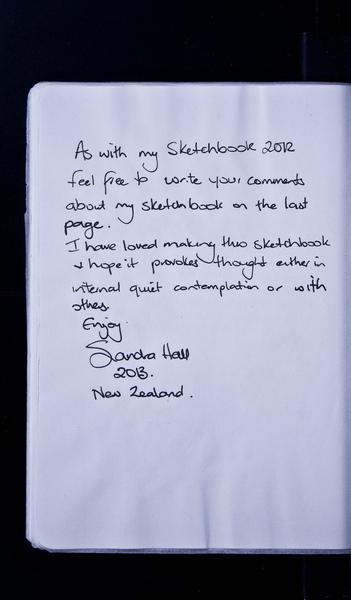 As with my Sketchbook 2012
feel free to write your comments
about my sketchbook on the last
page.
I have loved making this sketchbook
& hope it provokes thought either in
internal quiet contemplation or with
others.
Enjoy.
Sandra Hall
2013.
New Zealand.